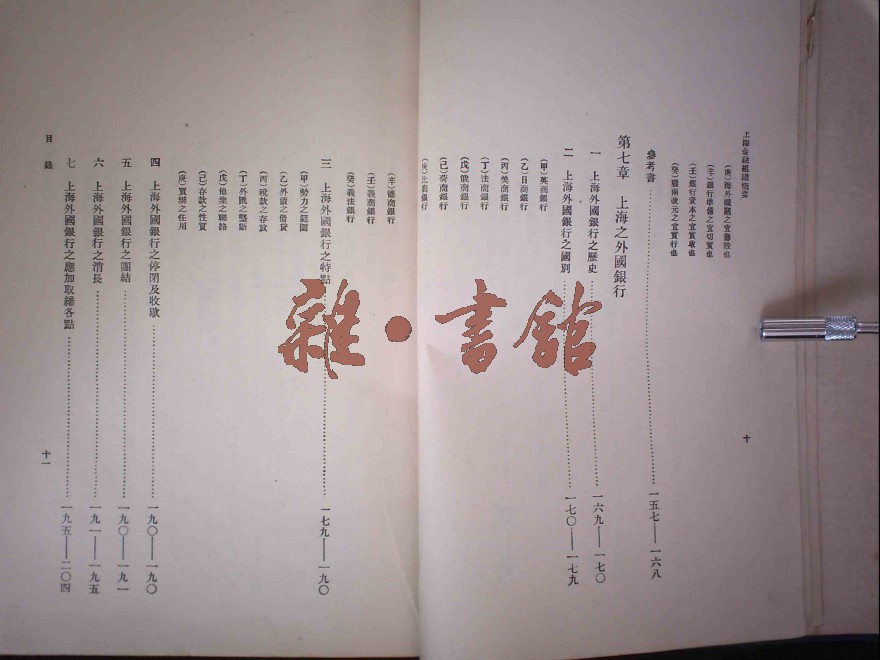 上海金融組織概要
(庚)海外滙劃之宜籌設也
(辛)銀行準備之宜切實也
(壬)銀行資本之宜實收也
(癸)廢兩改元之宜實行也
參考書……一五七——一六八
第七章 上海之外國銀行
一 上海外國銀行之歷史……一六九——一七〇
二 上海外國銀行之國別……一七〇——一七九
(甲)英商銀行
(乙)日商銀行
(丙)美商銀行
(丁)法商銀行
(戊)俄商銀行
(己)荷商銀行
(庚)比商銀行
十
(辛)德商銀行
(壬)義商銀行
(癸)義法銀行
三 上海外國銀行之特點……一七九——一九〇
(甲)勢力之範圍
(乙)外債之借貸
(丙)稅款之存放
(丁)外匯之壟斷
(戊)他業之聯絡
(己)存款之性質
(庚)買辦之任用
四 上海外國銀行之停閉及收歇……一九〇——一九〇
五 上海外國銀行之團結……一九〇——一九一
六 上海外國銀行之消長……一九一——一九五
七 上海外國銀行之應加取締各點……一九五——二〇四
目錄
十一
雜·書館